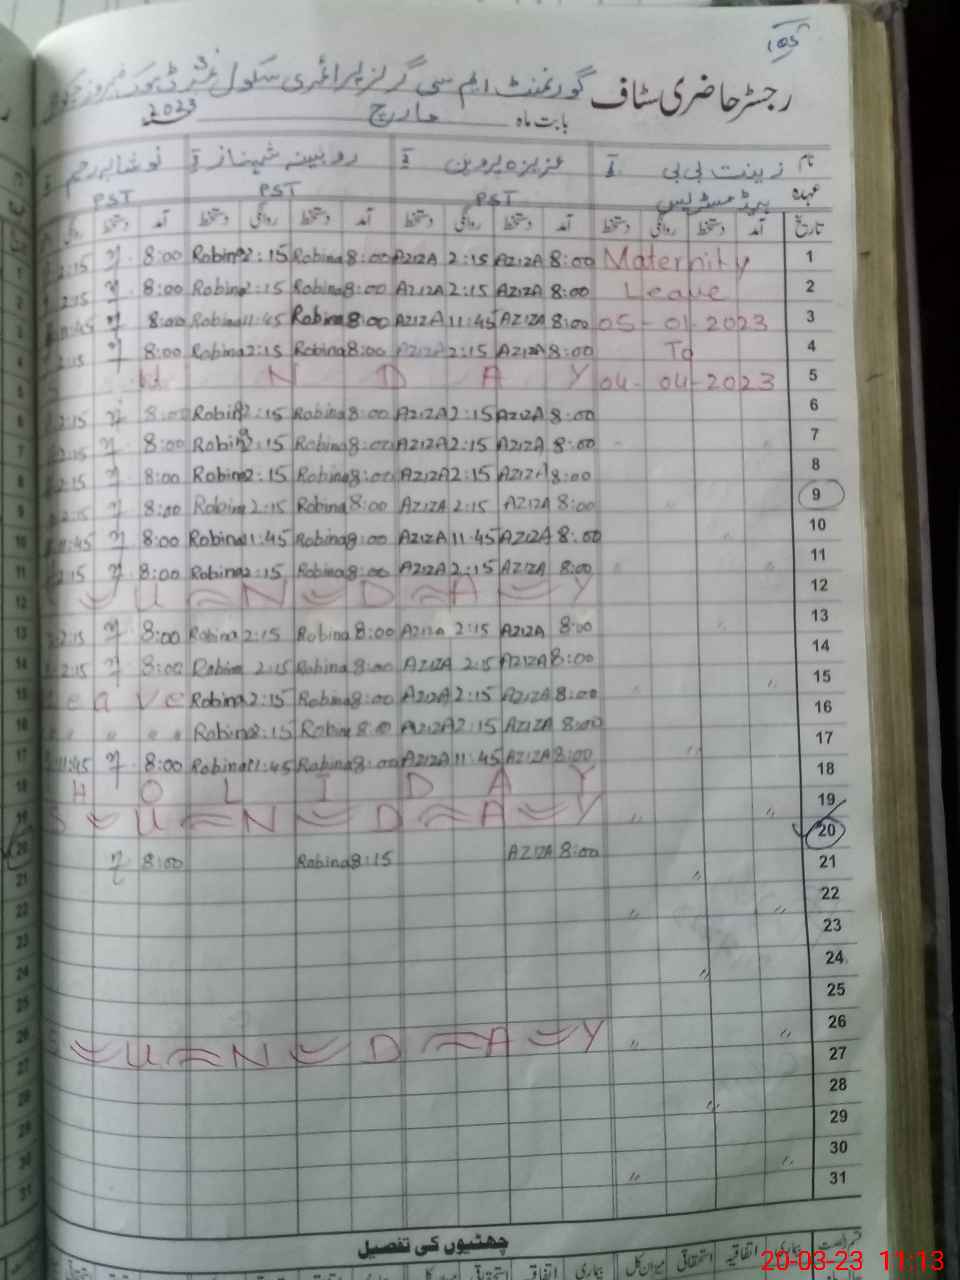 105
رجسٹر حاضری سٹاف گورنمنٹ ایم سی گرلز پرائمری سکول
بابت ماہ مارچ 2023
نام زینت بی بی عزیزہ پروین روبینہ شہناز
عہدہ ہیڈ مسٹریس PST PST PST
تاریخ آمد دستخط روانگی دستخط آمد دستخط روانگی دستخط آمد دستخط روانگی دستخط آمد دستخط روانگی
1 Maternity 8:00 AZIZA 2:15 AZIZA 8:00 Robina 2:15 Robina 8:00 2:15
2 Leave 8:00 AZIZA 2:15 AZIZA 8:00 Robina 2:15 Robina 8:00 2:15
3 05-01-2023 8:00 AZIZA 11:45 AZIZA 8:00 Robina 11:45 Robina 8:00 11:45
4 To 8:00 AZIZA 2:15 AZIZA 8:00 Robina 2:15 Robina 8:00 2:15
5 04-04-2023 U N D A Y
6 8:00 AZIZA 2:15 AZIZA 8:00 Robina 2:15 Robina 8:00 2:15
7 8:00 AZIZA 2:15 AZIZA 8:00 Robina 2:15 Robina 8:00 2:15
8 8:00 AZIZA 2:15 AZIZA 8:00 Robina 2:15 Robina 8:00 2:15
9 8:00 AZIZA 2:15 AZIZA 8:00 Robina 2:15 Robina 8:00 2:15
10 8:00 AZIZA 11:45 AZIZA 8:00 Robina 11:45 Robina 8:00 11:45
11 8:00 AZIZA 2:15 AZIZA 8:00 Robina 2:15 Robina 8:00 2:15
12 U N D A Y
13 8:00 AZIZA 2:15 AZIZA 8:00 Robina 2:15 Robina 8:00 2:15
14 8:00 AZIZA 2:15 AZIZA 8:00 Robina 2:15 Robina 8:00 2:15
15 8:00 AZIZA 2:15 AZIZA 8:00 Robina 2:15 Robina e a v e
16 8:00 AZIZA 2:15 AZIZA 8:00 Robina 2:15 Robina " " " "
17 8:00 AZIZA 11:45 AZIZA 8:00 Robina 11:45 Robina 8:00 11:45
18 H O L I D A Y
19 S U N D A Y
20 8:00 AZIZA 8:15 Robina 8:00
21
22
23
24
25
26 S U N D A Y
27
28
29
30
31
چھٹیوں کی تفصیل
قسم رخصت بیماری اتفاقیہ استحقاقی میزان کل بیماری اتفاقیہ استحقاقی میزان کل بیماری اتفاقیہ استحقاقی
20-03-23 11:13